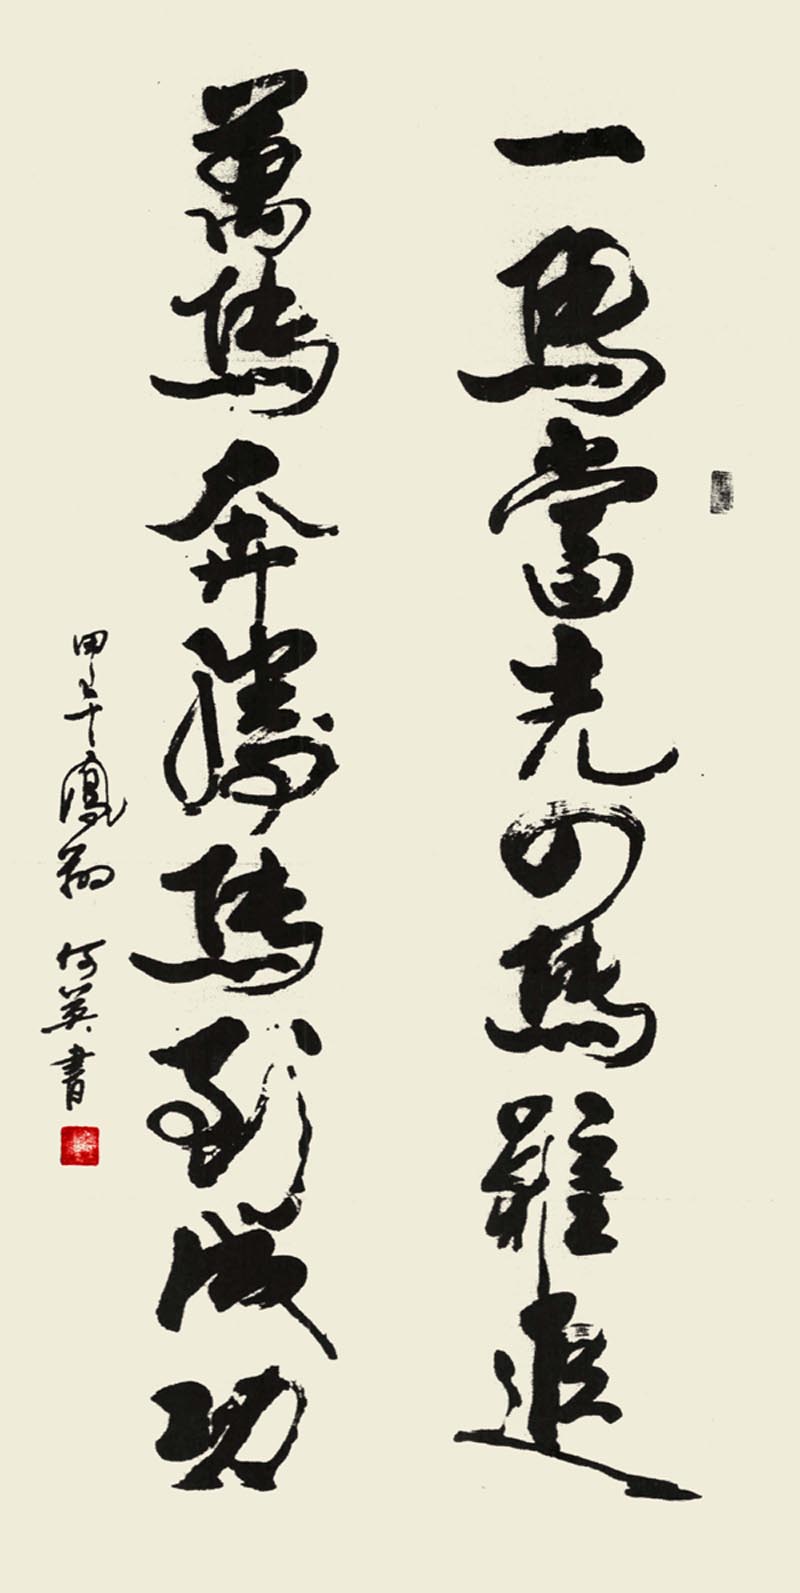 一馬當先四馬難追
萬馬奔騰馬到成功
甲午鳳翔 何英書